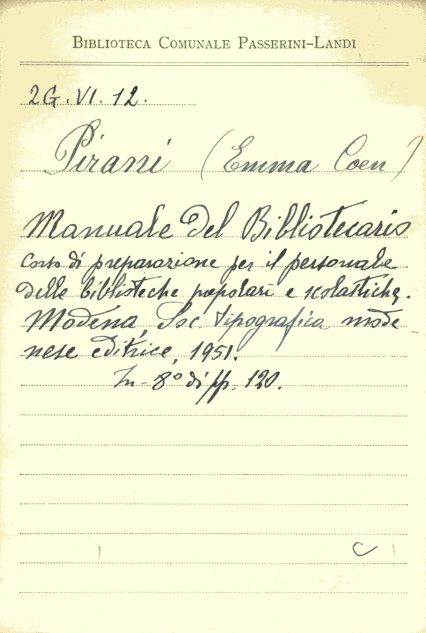 BIBLIOTECA COMUNALE PASSERINI-LANDI
2G.VI.12.
Pirani (Emma Coen)
Manuale del Bibliotecario
Corso di preparazione per il personale
delle biblioteche popolari e scolastiche.
Modena, Soc. tipografica mode
nese editrice, 1951.
In-8° di pp. 120.
C